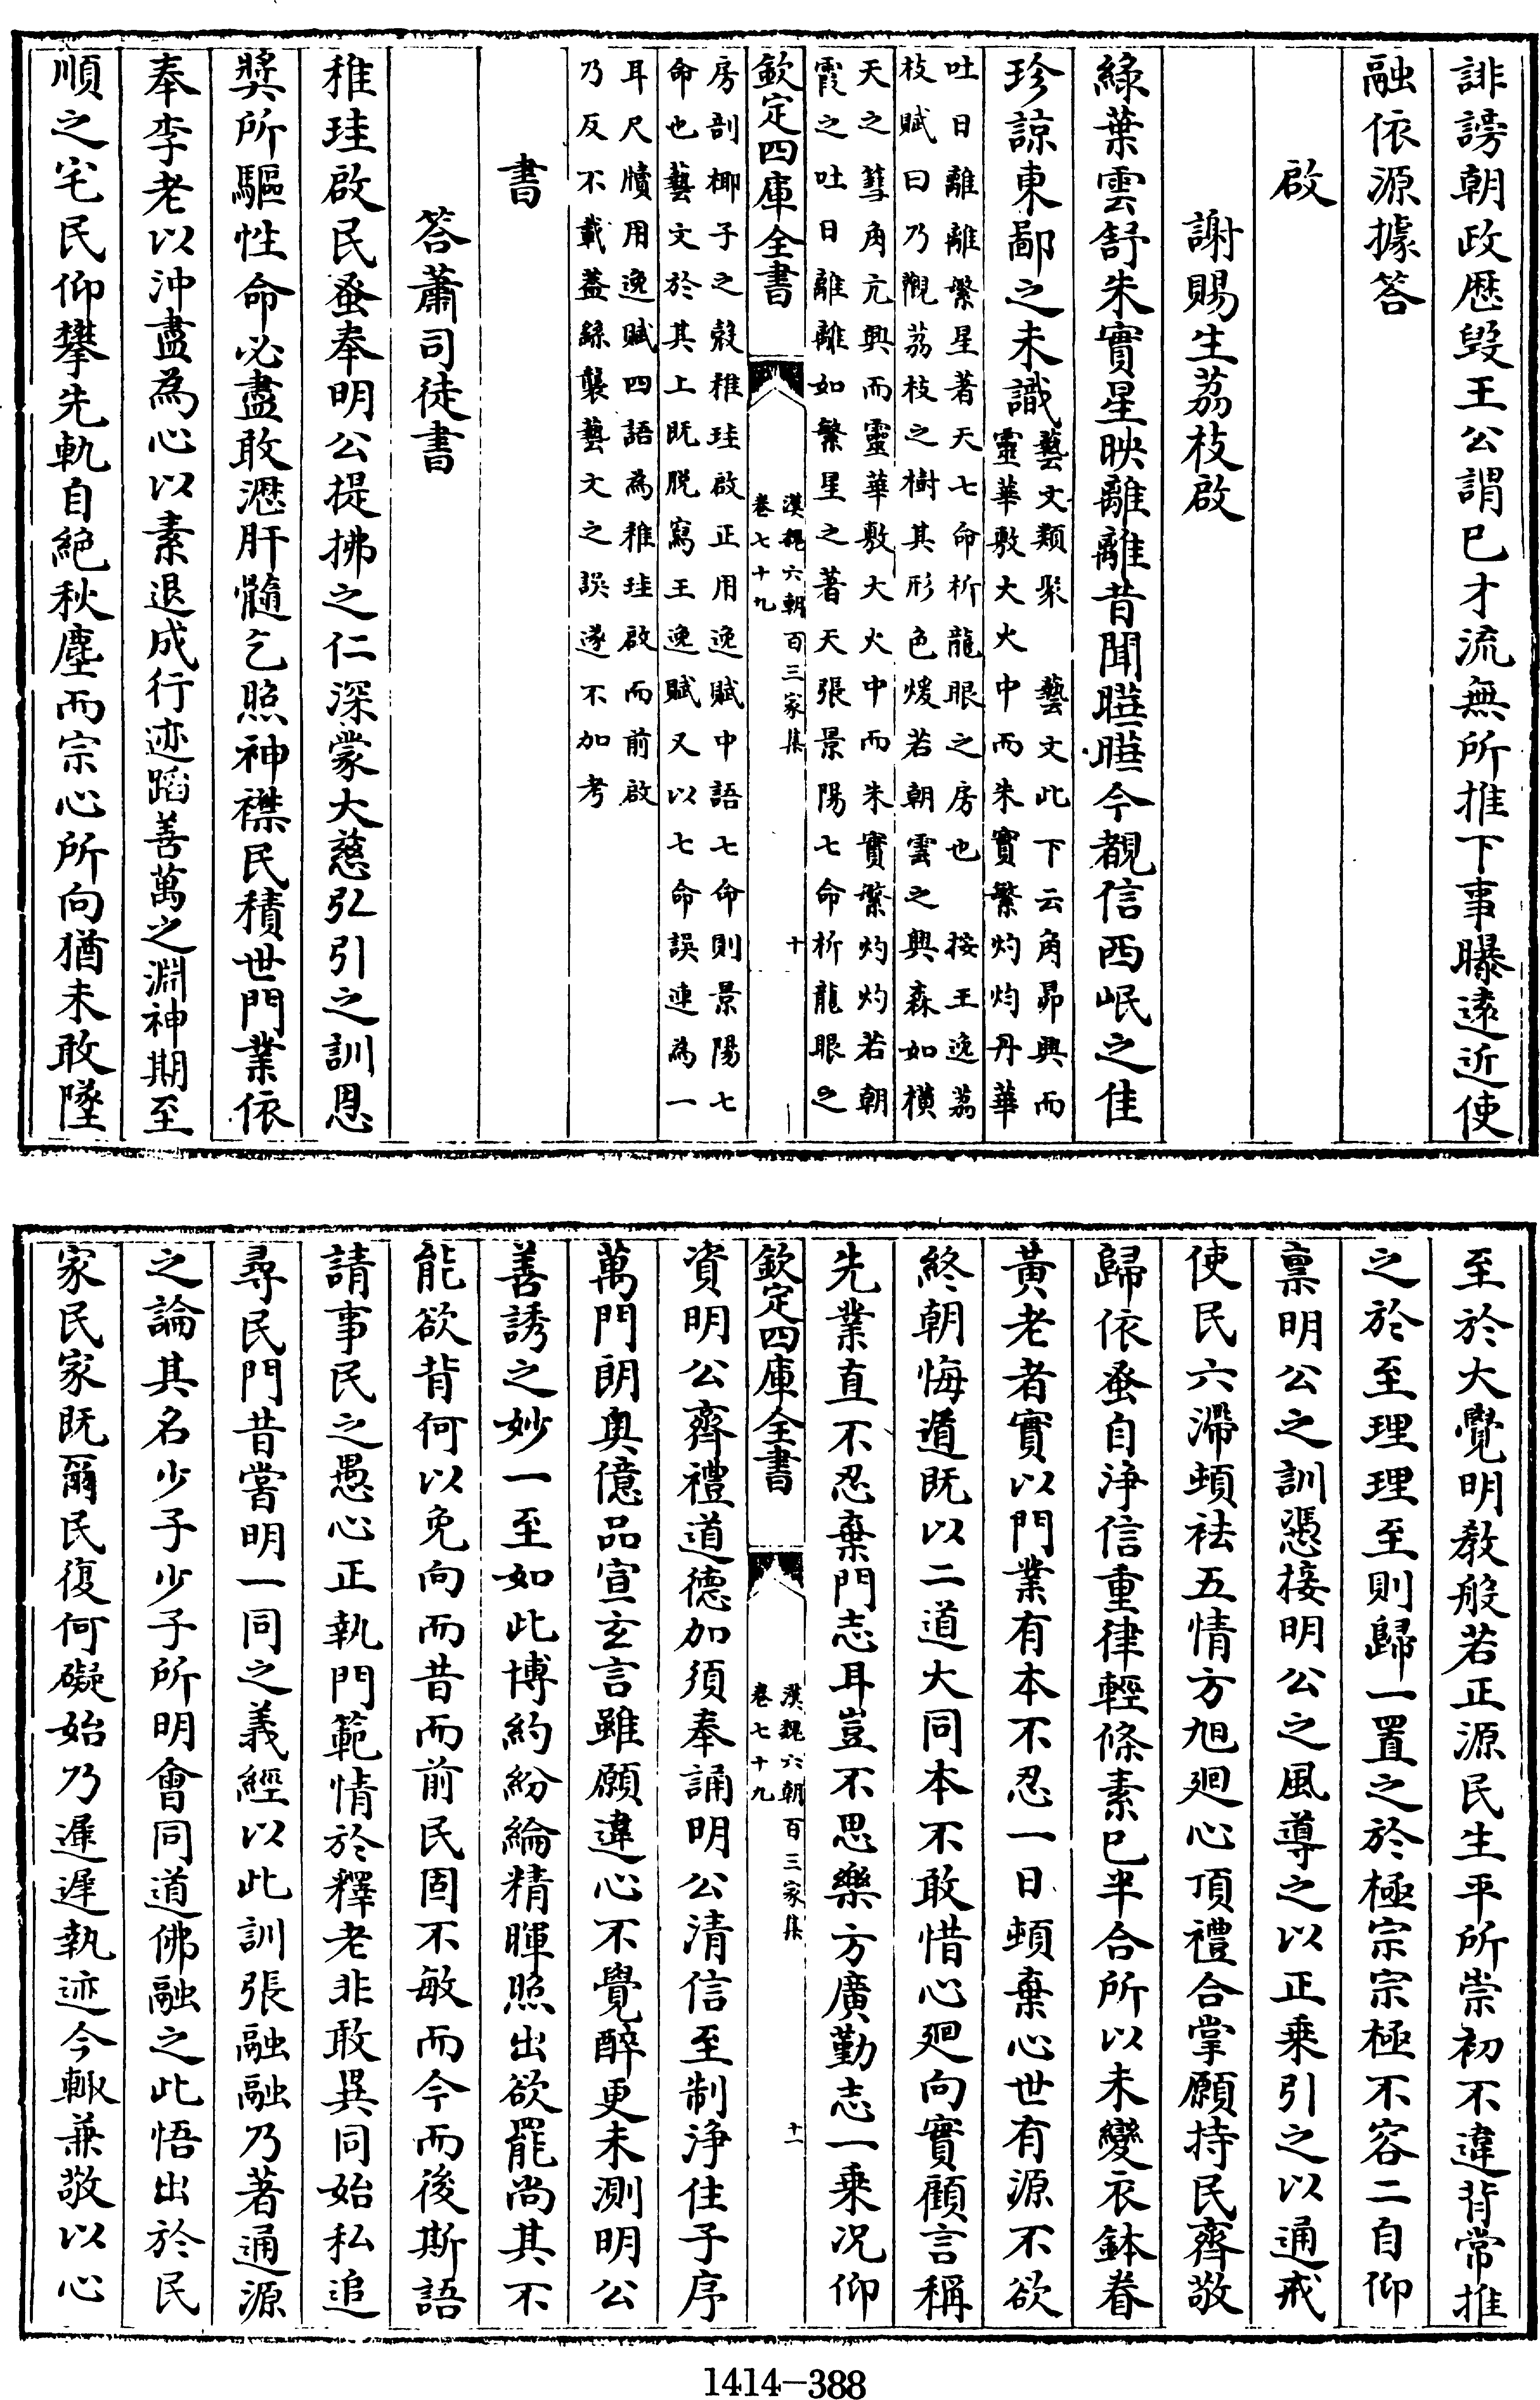 誹謗朝政歴毁王公謂已才流無所推下事曝逺近使
融依源據答
啟
謝賜生荔枝啟
綠葉雲舒朱實星映離離昔聞曄曄今覩信西岷之佳
珍諒東鄙之未識
藝文類聚　藝文此下云角昴興而
靈華敷大火中而朱實繁灼灼丹華
吐日離離繁星著天七命析龍眼之房也　按王逸荔
枝賦曰乃觀荔枝之樹其形色煖若朝雲之興森如橫
天之彗角亢興而靈華敷大火中而朱實繁灼灼若朝
霞之吐日離離如繁星之著天張景陽七命析龍眼之
欽定四庫全書
漢魏六朝百三家集
卷七十九
十
房剖椰子之殼稚珪啟正用逸賦中語七命則景陽七
命也藝文於其上既脱寫王逸賦又以七命誤連為一
耳尺牘用逸賦四語為稚珪啟而前啟
乃反不載葢緣襲藝文之誤遂不加考
書
答蕭司徒書
稚珪啟民蚤奉明公提拂之仁深蒙大慈弘引之訓恩
奬所驅性命必盡敢瀝肝髓乞照神襟民積世門業依
奉李老以沖盡為心以素退成行迹蹈善萬之淵神期至
順之宅民仰攀先軌自絶秋塵而宗心所向猶未敢墜
至於大覺明教般若正源民生平所崇初不違背常推
之於至理理至則歸一置之於極宗宗極不容二自仰
禀明公之訓憑接明公之風導之以正乗引之以通戒
使民六滯頓祛五情方旭廻心頂禮合掌願持民齊敬
歸依蚤自浄信重律輕條素已半合所以未變衣鉢眷
黃老者實以門業有本不忍一日頓棄心世有源不欲
終朝悔遁既以二道大同本不敢惜心廻向實顧言稱
先業直不忍棄門志耳豈不思樂方廣勤志一乗况仰
欽定四庫全書
漢魏六朝百三家集
卷七十九
十一
資明公齊禮道德加須奉誦明公清信至制浄住子序
萬門朗奥億品宣玄言雖願違心不覺醉更未測明公
善誘之妙一至如此博約紛綸精暉照出欲罷尚其不
能欲背何以免向而昔而前民固不敏而今而後斯語
請事民之愚心正執門範情於釋老非敢異同始私追
尋民門昔嘗明一同之義經以此訓張融融乃著通源
之論其名少子少子所明會同道佛融之此悟出於民
家民家既爾民復何礙始乃遲遲執迹今輙兼敬以心
1414-388